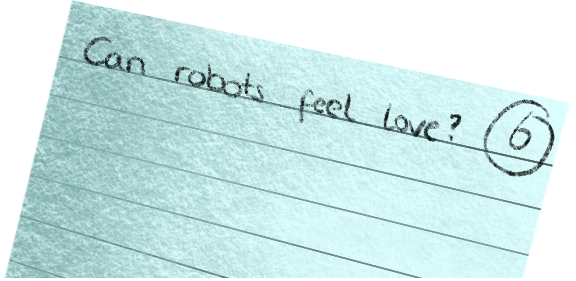 Can robots feel love? 6